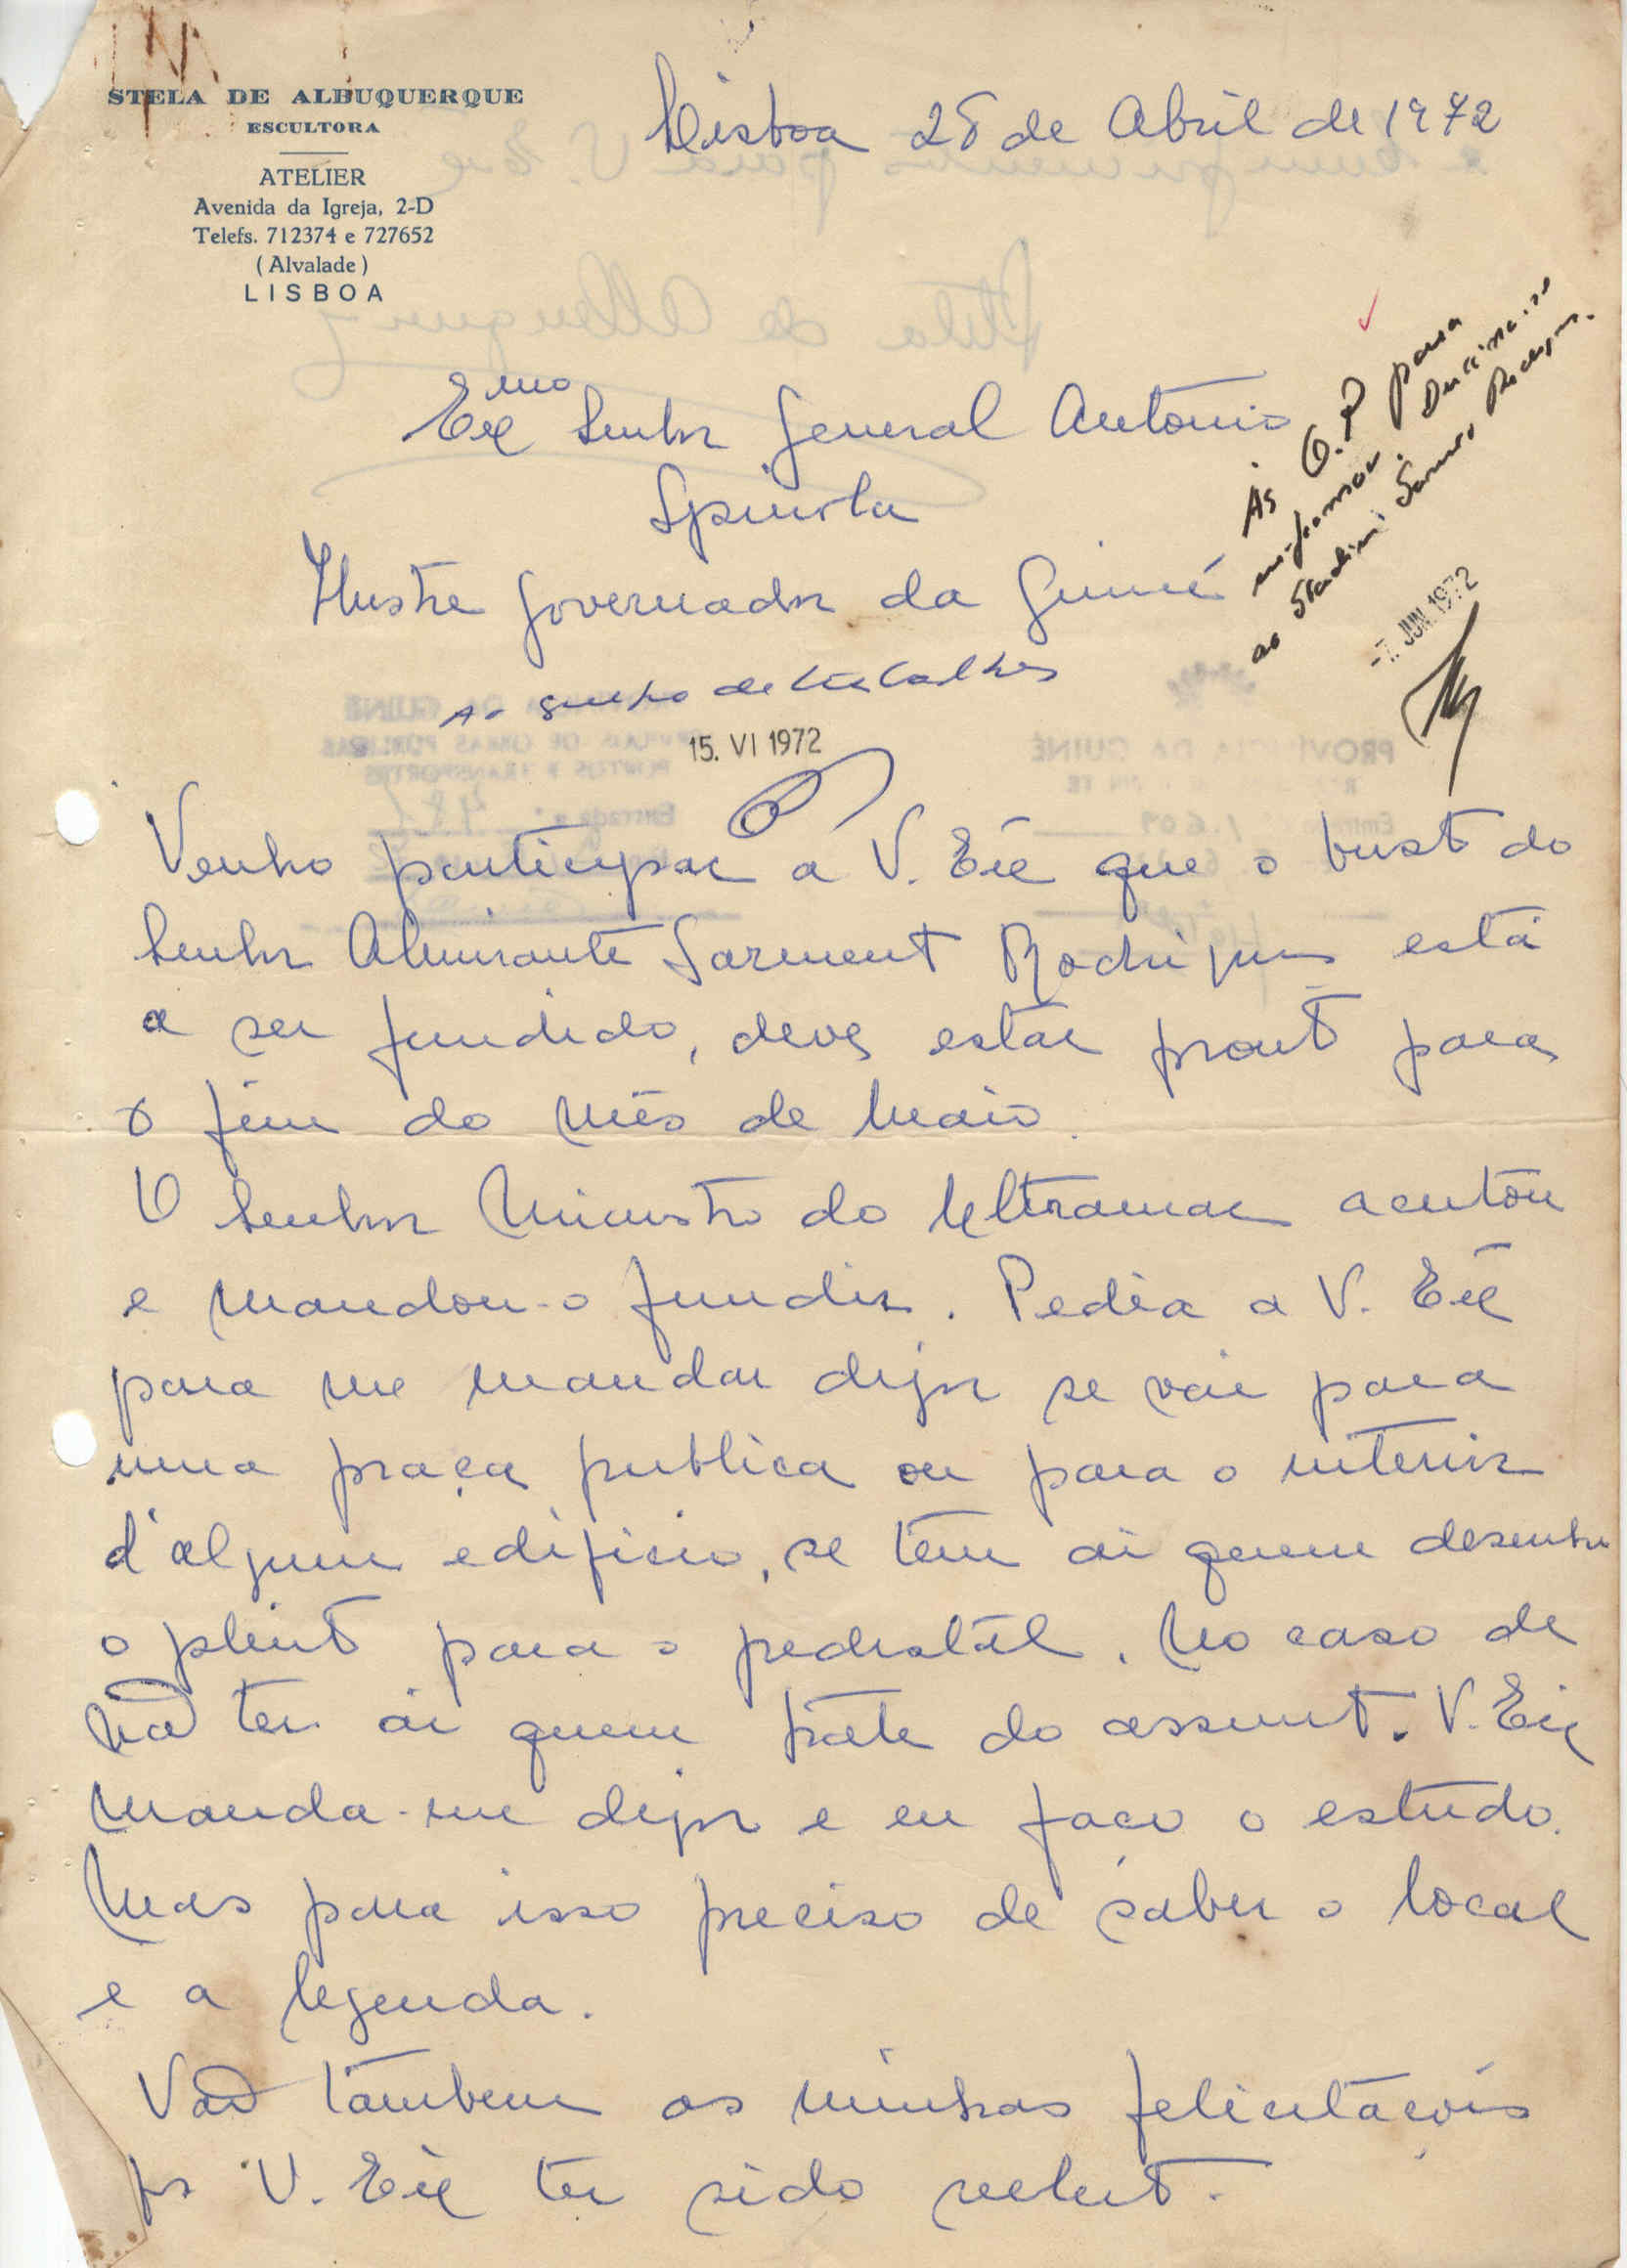 STELA DE ALBUQUERQUE
ESCULTORA
ATELIER
Avenida da Igreja, 2-D
Telefs. 712374 e 727652
(Alvalade)
LISBOA
Lisboa 28 de Abril de 1972
Exmo Senhor General António
Spinola
Ilustre Governador da Guiné
Às O.P para
informar.
ao Stadium Sarmento Rodrigues.
-7. JUN. 1972
Ao grupo de trabalhos
15. VI 1972
Venho participar a V. Exe que o busto do
Senhor Almirante Sarmento Rodrigues está
a ser fundido, deve estar pronto para
o fim do mês de Maio.
O Senhor Ministro do Ultramar aceitou
e mandou-o fundir. Pedia a V. Exe
para me mandar dizer se vai para
uma praça publica ou para o interior
d'algum edificio, se tem ai quem desenhe
o plinto para o pedestal. No caso de
não ter ai quem trate do assunto. V. Exe
manda-me dizer e eu faço o estudo.
Mas para isso preciso de saber o local
e a legenda.
Vão tambem as minhas felicitações
por V. Exe ter sido reeleito.